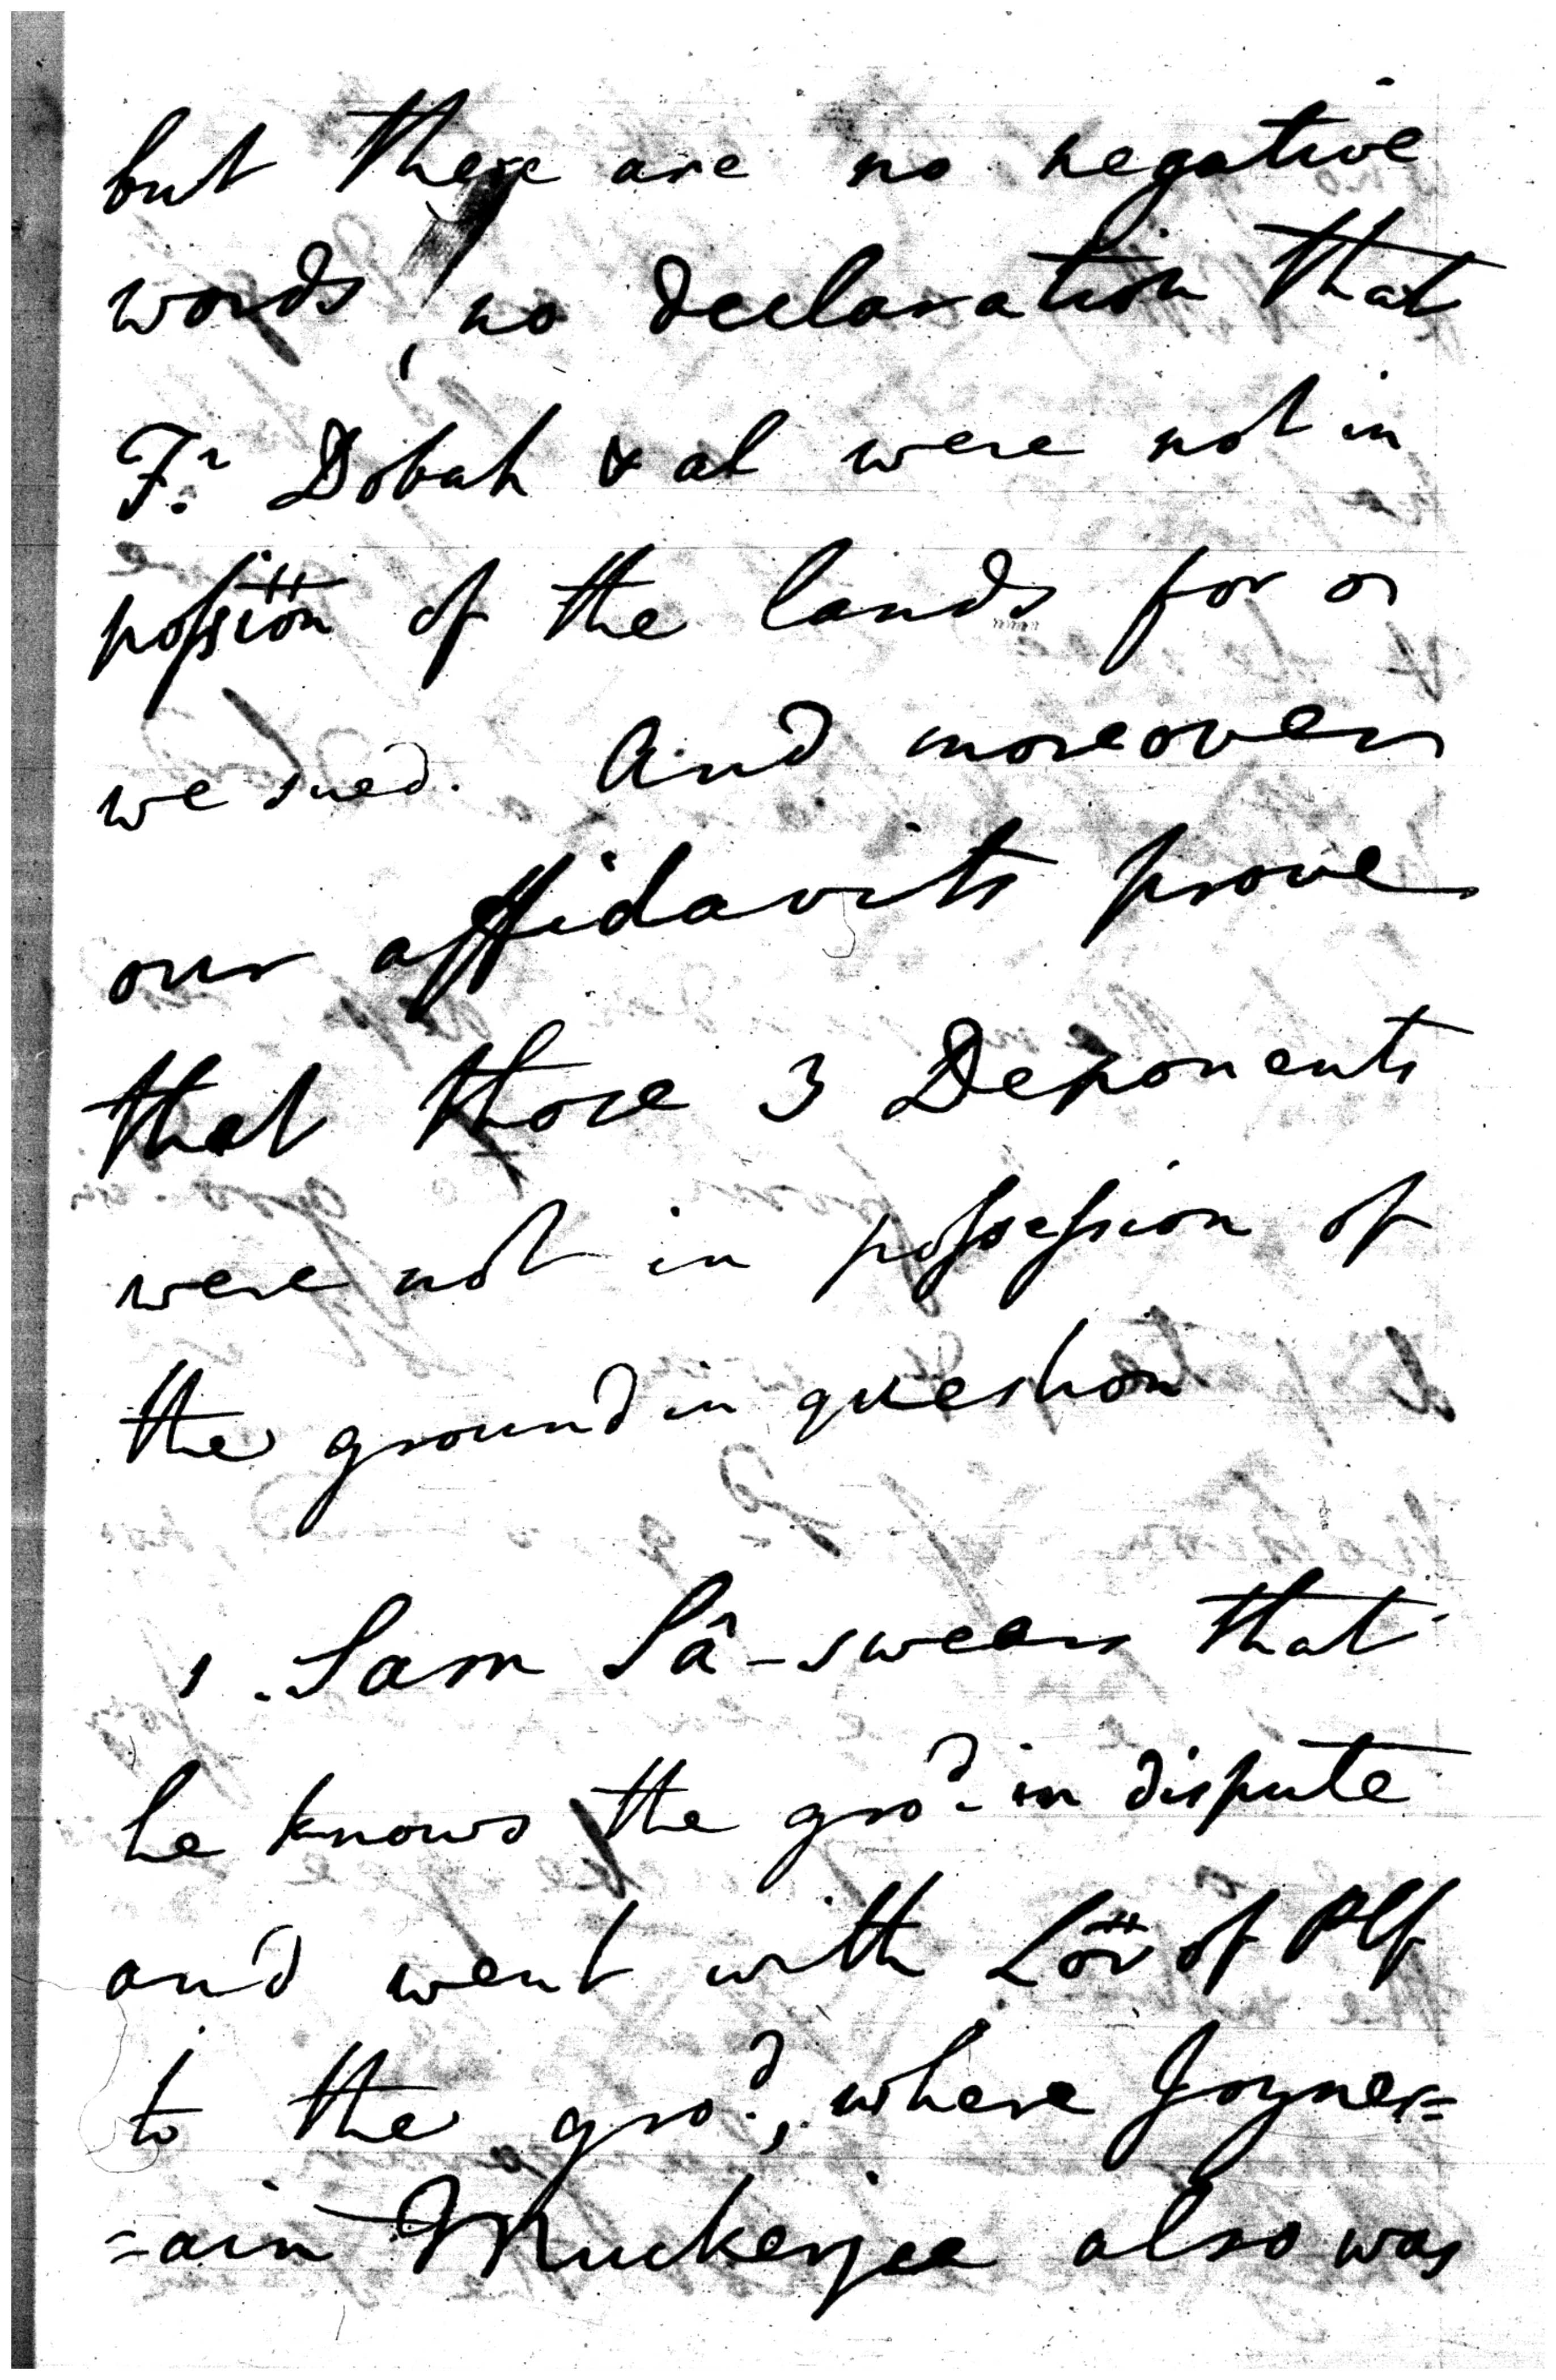 but there are no negative
words, no declaration that
Fr. Dobah & al were not in
possion of the lands for or
we sued. And moreover
our affidavits prove
that those 3 Deponents
were not in possession of
the ground in question
1. Sam Sâ - swears that
he knows the grod. in dispute
and went with of Plf
to the grod., where Joyner=
=ain Muckerjee also was